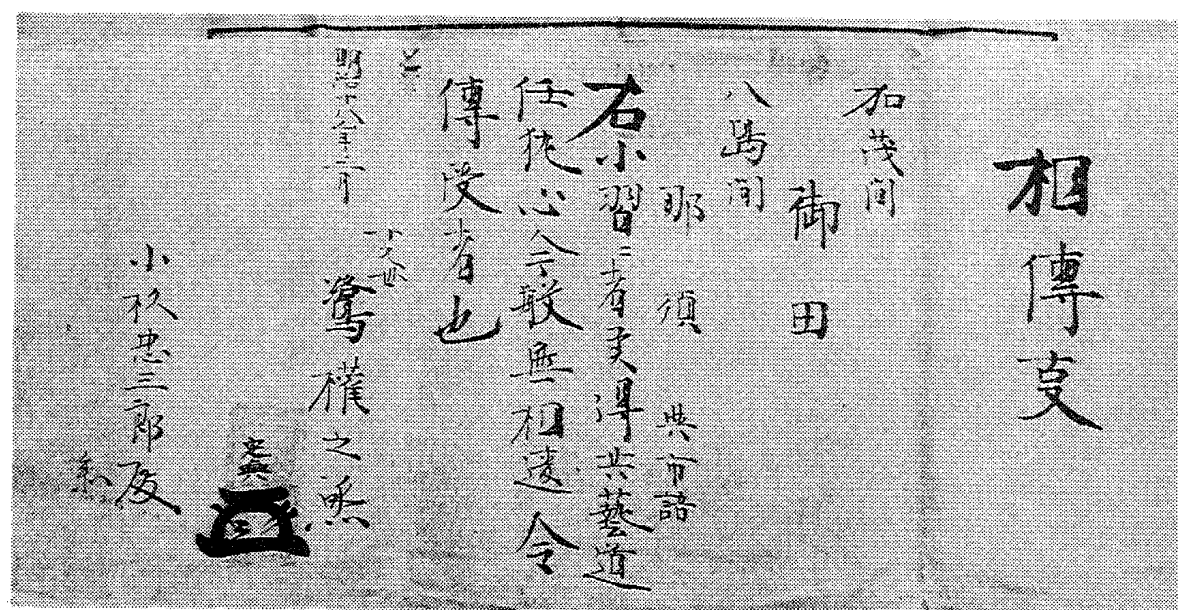 相傳叓
加茂間
御田
八嶌間
那須 與市語
右小習ニ者候得共藝道
任執心今般無相違令
傳受者也
明治十八年二月
十九世
鷺權之丞
小杦忠三郎殿